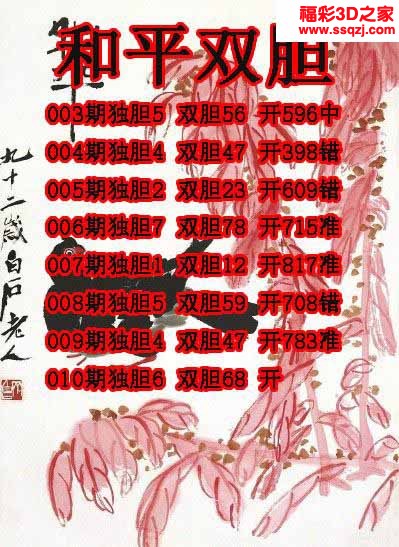 福彩3D之家
www.ssqzj.com
和平双胆
003期独胆5 双胆56 开596中
004期独胆4 双胆47 开398错
005期独胆2 双胆23 开609错
006期独胆7 双胆78 开715准
007期独胆1 双胆12 开817准
008期独胆5 双胆59 开708错
009期独胆4 双胆47 开783准
010期独胆6 双胆68 开
九十二岁白石老人